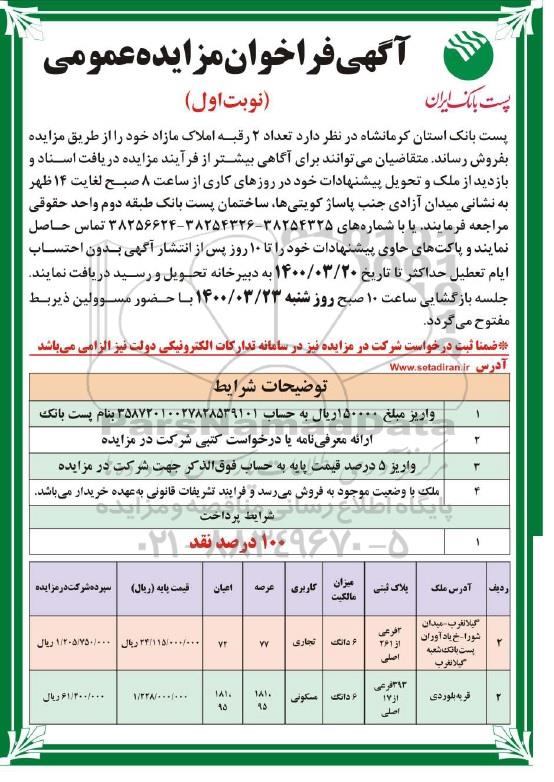 آگهی فراخوان مزایده عمومی
پست بانک ایران
(نوبت اول)
پست بانک استان کرمانشاه در نظر دارد تعداد ۲ رقبه املاک مازاد خود را از طریق مزایده
بفروش رساند. متقاضیان می‌توانند برای آگاهی بیشتر از فرآیند مزایده دریافت اسناد و
بازدید از ملک و تحویل پیشنهادات خود در روزهای کاری از ساعت ۸ صبح لغایت ۱۴ ظهر
به نشانی میدان آزادی جنب پاساژ کویتی‌ها، ساختمان پست بانک طبقه دوم واحد حقوقی
مراجعه فرمایند. یا با شماره‌های ۳۸۲۵۴۳۲۵-۳۸۲۵۴۳۲۶-۳۸۲۵۶۶۲۴ تماس حاصل
نمایند و پاکت‌های حاوی پیشنهادات خود را تا ۱۰ روز پس از انتشار آگهی بدون احتساب
ایام تعطیل حداکثر تا تاریخ ۱۴۰۰/۰۳/۲۰ به دبیرخانه تحویل و رسید دریافت نمایند.
جلسه بازگشایی ساعت ۱۰ صبح روز شنبه ۱۴۰۰/۰۳/۲۳ با حضور مسوولین ذیربط
مفتوح می‌گردد.
*ضمنا ثبت درخواست شرکت در مزایده نیز در سامانه تدارکات الکترونیکی دولت نیز الزامی می‌باشد
آدرس Www.setadiran.ir
توضیحات شرایط
۱ واریز مبلغ ۱۵۰۰۰۰۰ ریال به حساب ۳۵۸۷۲۰۱۰۰۲۷۸۲۸۵۳۹۱۰۱ بنام پست بانک
۲ ارائه معرفی‌نامه یا درخواست کتبی شرکت در مزایده
۳ واریز ۵ درصد قیمت پایه به حساب فوق‌الذکر جهت شرکت در مزایده
۴ ملک با وضعیت موجود به فروش می‌رسد و فرایند تشریفات قانونی به‌عهده خریدار می‌باشد.
شرایط پرداخت
۱ ۱۰۰ درصد نقد
ردیف آدرس ملک پلاک ثبتی میزان مالکیت کاربری عرصه اعیان قیمت پایه (ریال) سپرده شرکت در مزایده
۲ گیلانغرب-میدان شورا-خ یادآوران پست بانک شعبه گیلانغرب ۳فرعی از ۲۶۱ اصلی ۶ دانگ تجاری ۷۷ ۷۲ ۲۴/۱۱۵/۰۰۰/۰۰۰ ریال ۱/۲۰۵/۷۵۰/۰۰۰ ریال
۲ قریه بلوردی ۳۹۳فرعی از ۱۷ اصلی ۶ دانگ مسکونی ۱۸۱،۹۵ ۱۸۱،۹۵ ۱/۲۲۸/۰۰۰/۰۰۰ ۶۱/۴۰۰/۰۰۰ ریال
ParsNamadData
پایگاه اطلاع رسانی مناقصه و مزایده
۰۲۱-۸۸۳۴۹۶۷۰-۵